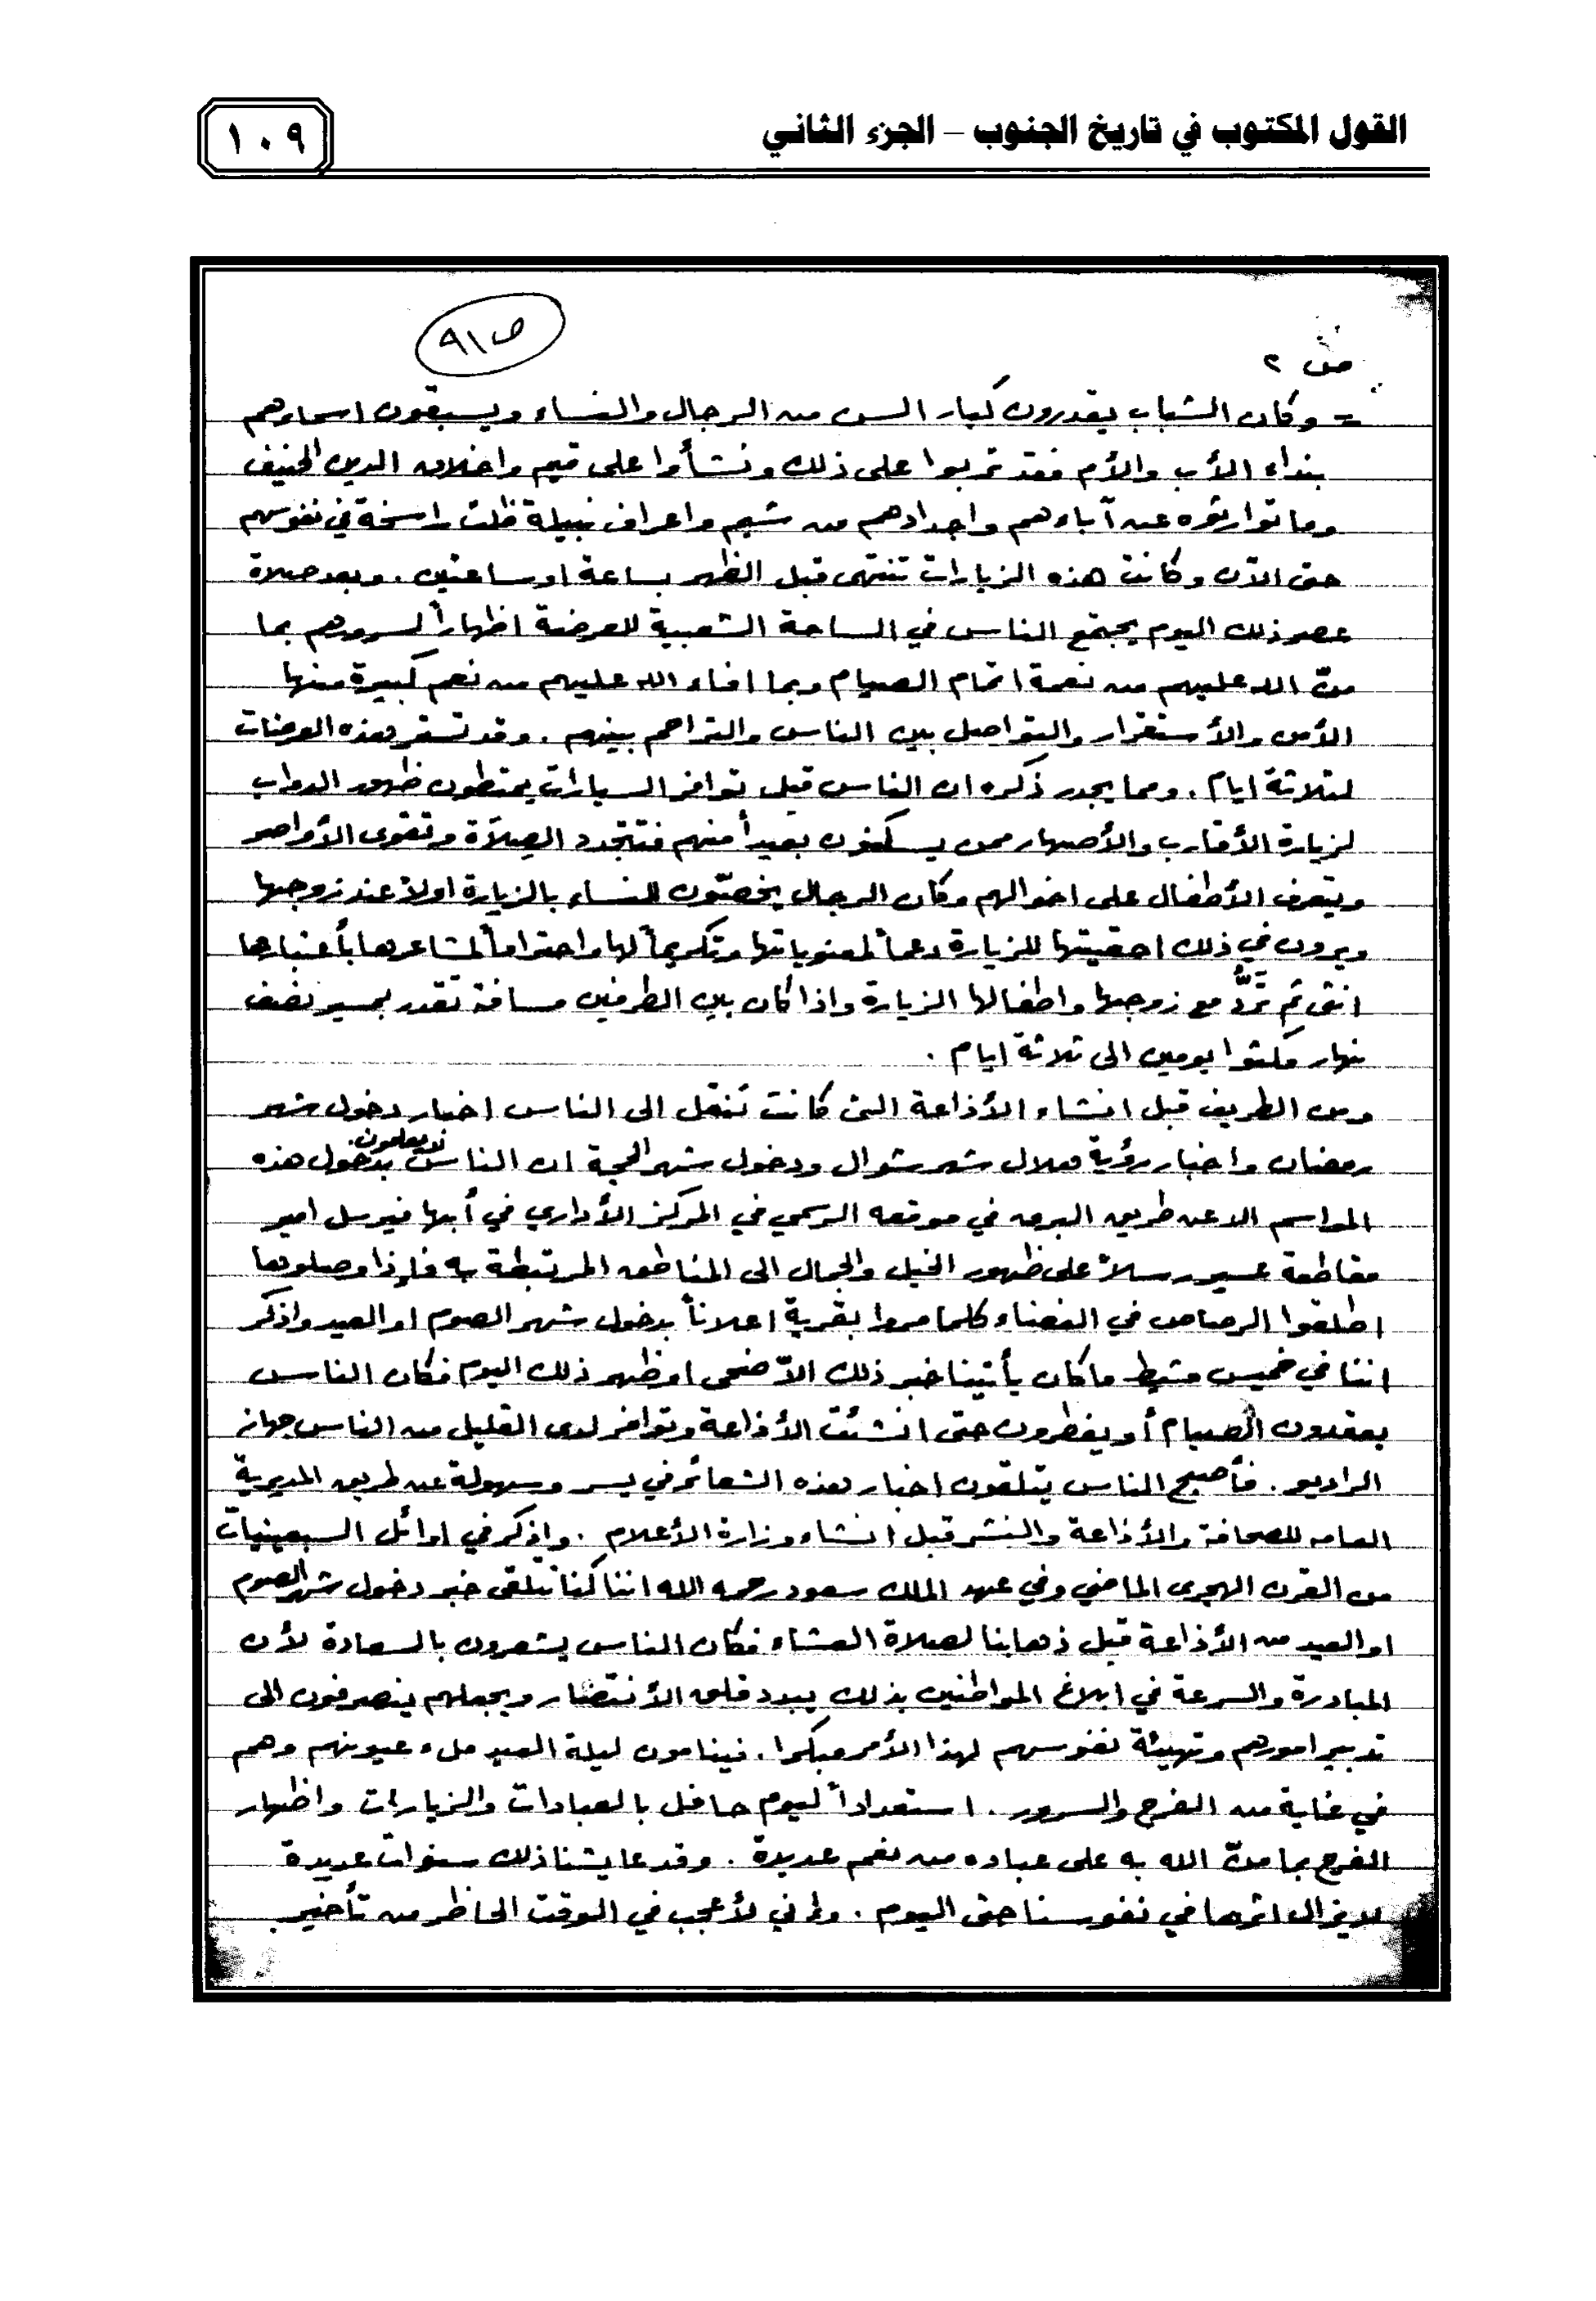 القول المكتوب في تاريخ الجنوب – الجزء الثاني
١٠٩
ص ٩١
ص ٢
= وكان الشباب يقدرون كبار السن من الرجال والنساء ويسبقون اسماءهم
بنداء الأب والأم فقد تربوا على ذلك ونشأوا على قيم واخلاق الدين الحنيف
وما توارثوه عن آباءهم واجدادهم من شيم واعراف نبيلة ظلت راسخة في نفوسهم
حتى الآن وكانت هذه الزيارات تنتهى قبل الظهر بساعة او ساعتين . وبعد صلاة
عصر ذلك اليوم يجتمع الناس في الساحة الشعبية للعرضة اظهاراً لسرورهم بما
منّ الله عليهم من نعمة اتمام الصيام وبما افاء الله عليهم من نعم كبيرة منها
الأمن والأستقرار والتواصل بين الناس والتراحم بينهم . وقد تستمر هذه العرضات
لثلاثة ايام . ومما يجدر ذكره ان الناس قبل توافر السيارات يمتطون ظهور الدواب
لزيارة الأقارب والأصهار ممن يسكنون بعيداً منهم فتتجدد الصلاة وتقوى الأواصر
ويتعرف الأطفال على اخوالهم وكان الرجال يخصّون للنساء بالزيارة اولاً عند زوجها
ويرون في ذلك احقيتها للزيارة دعماً لمعنوياتها وتكريماً لها واحتراماً لمشاعرها بأعتبارها
انثى ثم تردُّ مع زوجها واطفالها الزيارة واذا كان بين الطرفين مسافة تقدر بمسير نصف
نهار مكثوا يومين الى ثلاثة ايام .
ومن الطريف قبل انشاء الأذاعة التى كانت تنقل الى الناس اخبار دخول شهر
رمضان واخبار رؤية هلال شهر شوال ودخول شهر الحجة ان الناس لا يعلمون بدخول هذه
المواسم الا عن طريق البرق في موقعه الرسمي في المركز الأداري في أبها فيرسل امير
مقاطعة عسير رسلاً على ظهور الخيل والجمال الى المناطق المرتبطة به فإذا وصلوها
اطلقوا الرصاص في الفضاء كلما مروا بقرية اعلاناً بدخول شهر الصوم او العيد واذكر
اننا في خميس مشيط ما كان يأتينا خبر ذلك الاّ ضحى او ظهر ذلك اليوم فكان الناس
يعقدون الصيام أو يفطرون حتى انشئت الأذاعة وتوافر لدى القليل من الناس جهاز
الراديو . فأصبح الناس يتلقون اخبار هذه الشعائر في يسر وسهولة عن طريق المديرية
العامه للصحافة والأذاعة والنشر قبل انشاء وزارة الأعلام . واذكر في اوائل السبعينيات
من القرن الهجرى الماضي وفي عهد الملك سعود رحمه الله اننا كنا نتلقى خبر دخول شهر الصوم
او العيد من الأذاعة قبل ذهابنا لصلاة العشاء فكان الناس يشعرون بالسعادة لأن
المبادرة والسرعة في ابلاغ المواطنين بذلك يبدد قلق الأنتضار ويجعلهم ينصرفون الى
تدبير امورهم وتهيئة نفوسهم لهذا الأمر مبكرا . فينامون ليلة العيد ملء عيونهم وهم
في غاية من الفرح والسرور . استعداداً ليوم حافل بالعبادات والزيارات واظهار
الفرح بما منّ الله به على عباده من نعم عديدة . وقد عايشنا ذلك سنوات عديدة
لا يزال اثرها في نفوسنا حتى اليوم . وإني لأعجب في الوقت الحاظر من تأخير